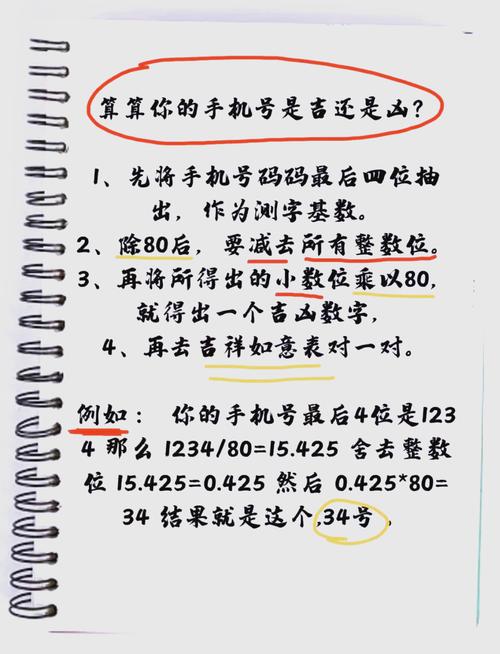 算算你的手机号是吉还是凶?
1、先将手机号码码最后四位抽
出，作为测字基数。
2、除80后，要减去所有整数位。
3、再将所得出的小数位乘以80，
就得出一个吉凶数字，
4、再去吉祥如意表对一对。
例如： 你的手机号最后4位是123
4 那么 1234/80=15.425 舍去整数
位 15.425=0.425 然后 0.425*80=
34 结果就是这个,34号 ，